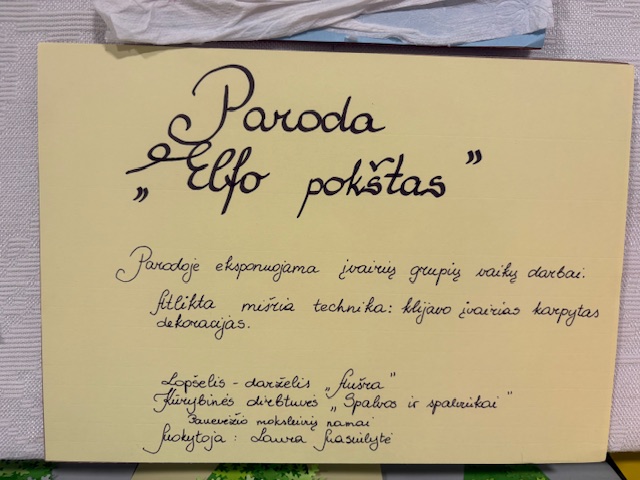 Paroda
„Elfo pokštas”
Parodoje eksponuojama įvairių grupių vaikų darbai.
Atlikta mišria technika: klijavo įvairias karpytas
dekoracijas.
Lopšelis - darželis „Aušra”
Kūrybinės dirbtuvės „Spalvos ir spalviukai”
Panevėžio moksleivių namai
Mokytoja: Laura